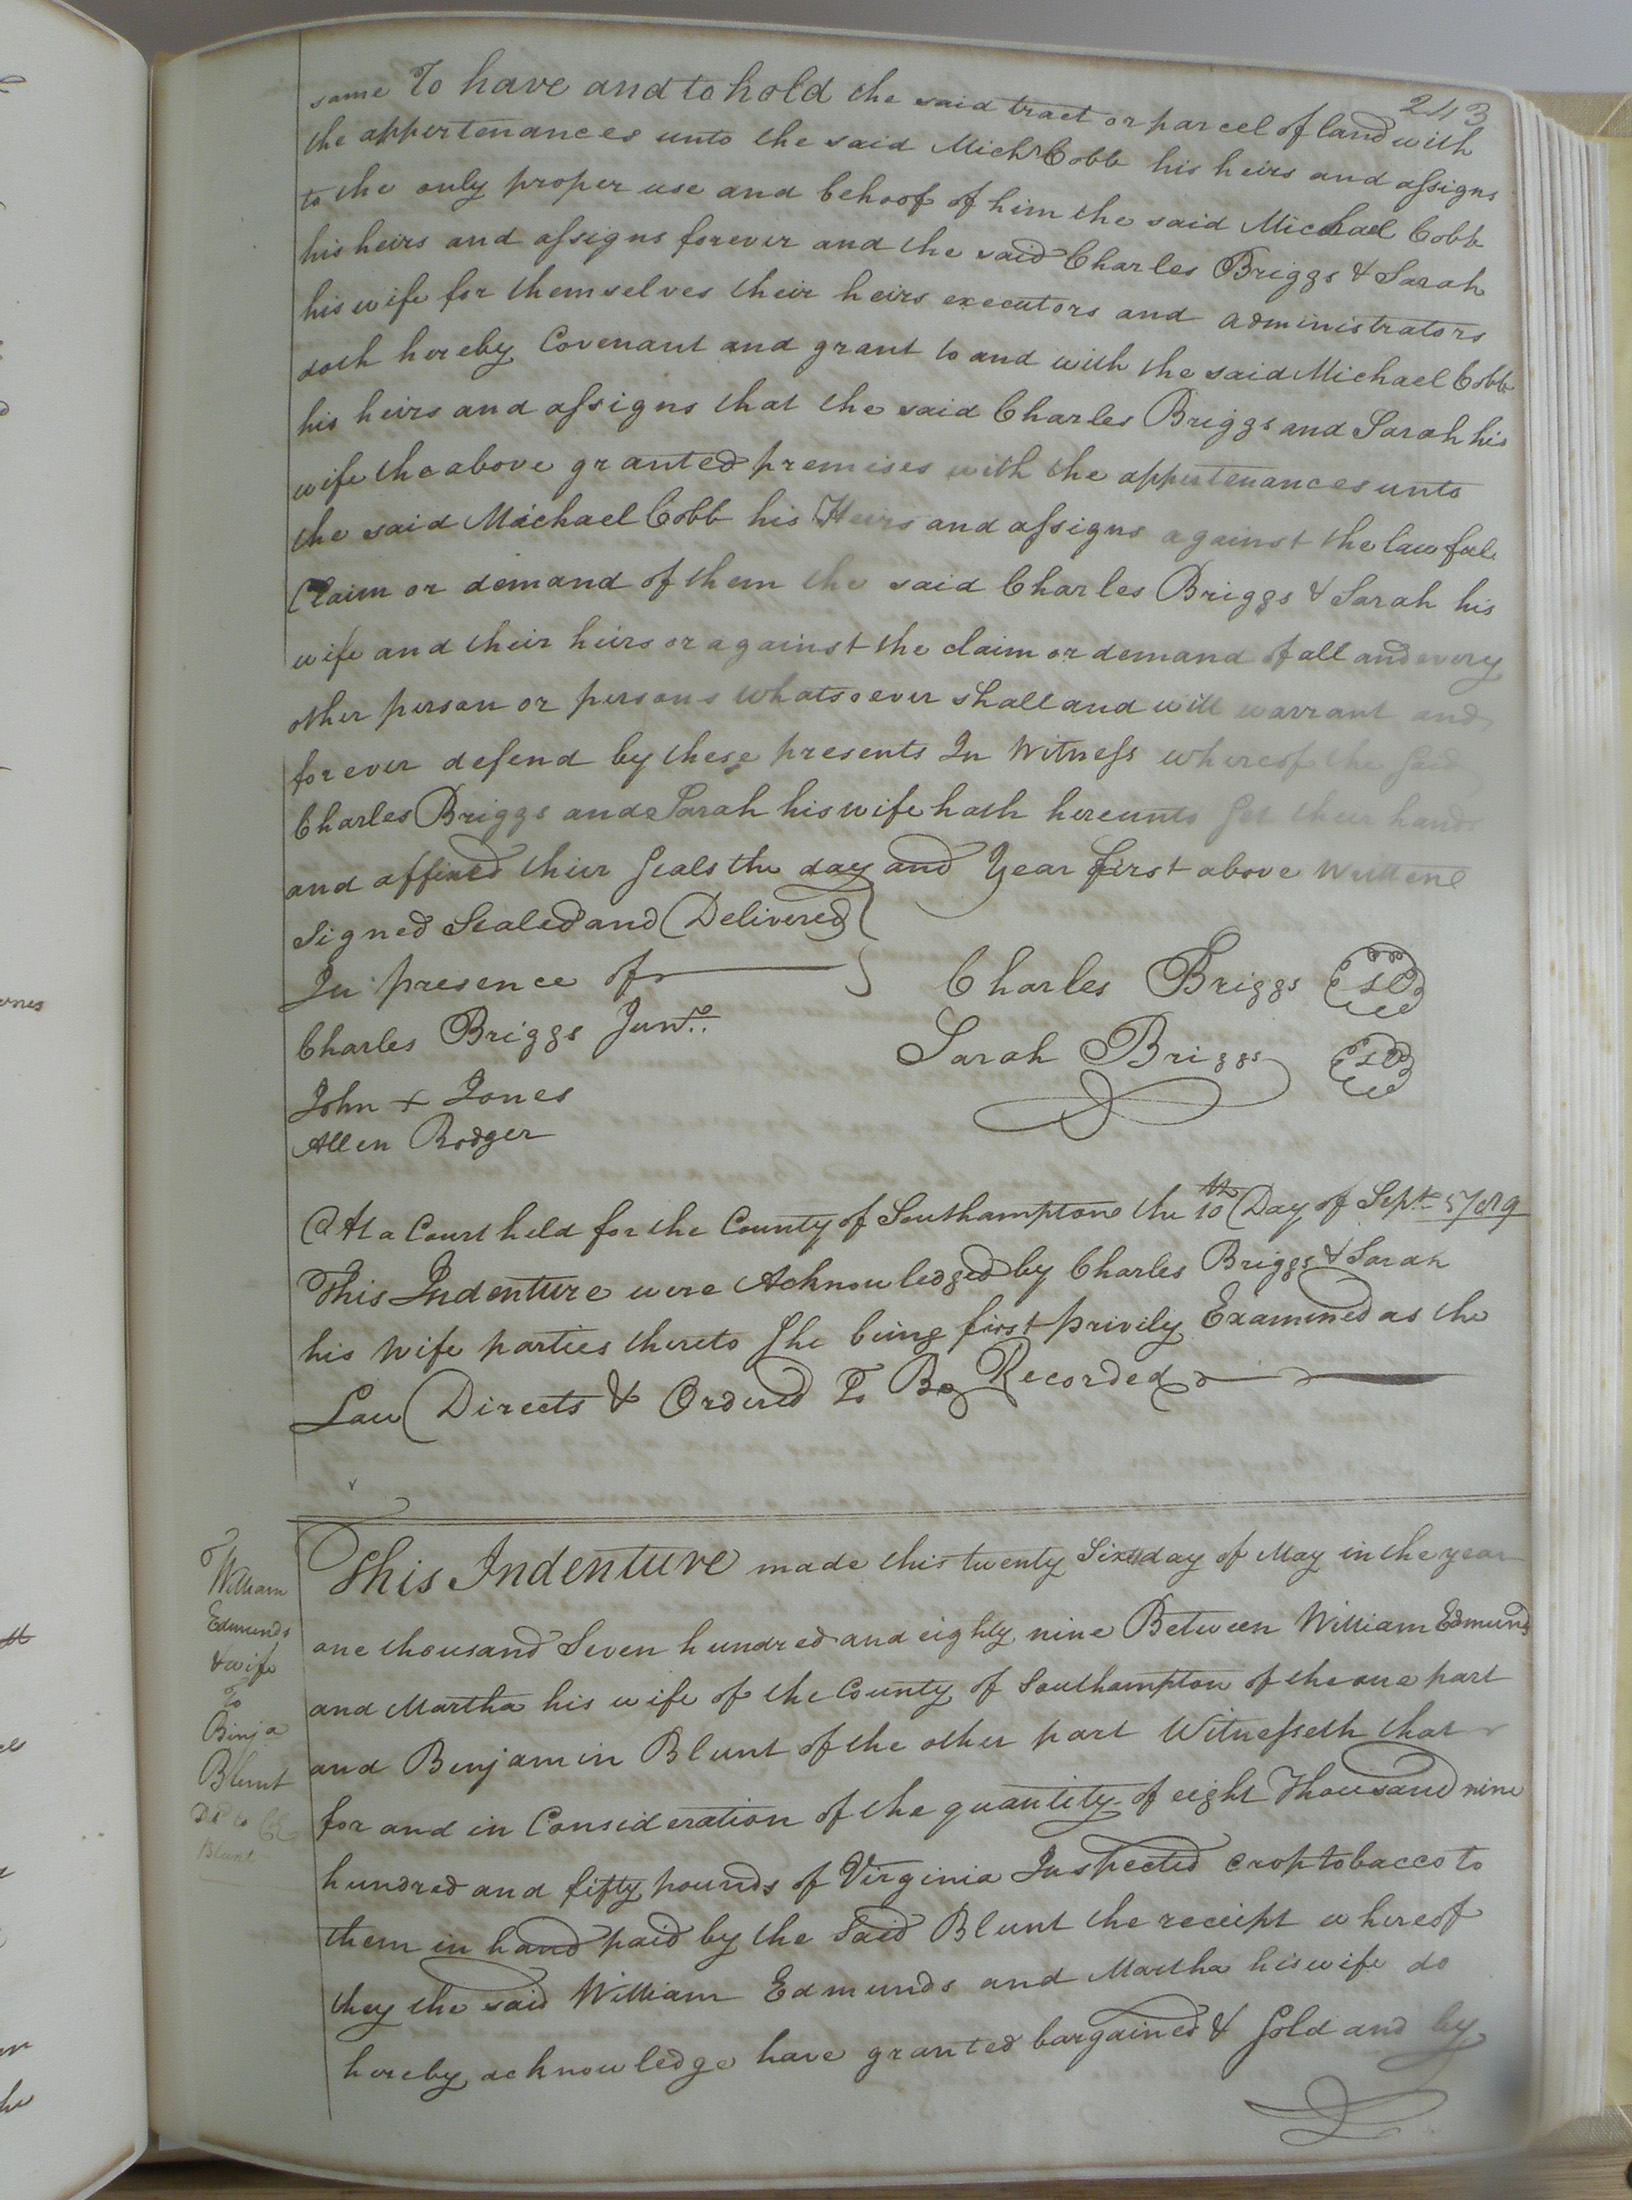 243
same To have and to hold the said tract or parcel of land with
the appurtenances unto the said Michl Cobb his heirs and assigns
to the only proper use and behoof of him the said Michael Cobb
his heirs and assigns forever and the said Charles Briggs & Sarah
his wife for themselves their heirs executors and administrators
doth hereby Covenant and grant to and with the said Michael Cobb
his heirs and assigns that the said Charles Briggs and Sarah his
wife the above granted premises with the appurtenances unto
the said Michael Cobb his Heirs and assigns against the lawful
Claim or demand of them the said Charles Briggs & Sarah his
wife and their heirs or against the claim or demand of all and every
other person or persons whatsoever shall and will warrant and
forever defend by these presents In Witness whereof the said
Charles Briggs and Sarah his wife hath hereunto set their hands
and affixed their seals the day and Year first above written
Signed Sealed and Delivered
In presence of
Charles Briggs LS
Charles Briggs Junr.
Sarah Briggs LS
John + Jones
Allen Rodger
At a Court held for the County of Southampton the 10th Day of Sept. 1789
This Indenture were Acknowledged by Charles Briggs & Sarah
his Wife parties thereto she being first privily Examined as the
Law Directs & Ordered To Be Recorded
William
Edmunds
& wife
To
Binja
Blunt
Dd to
Blunt
This Indenture made this twenty Sixth day of May in the year
one thousand Seven hundred and eighty nine Between William Edmunds
and Martha his wife of the County of Southampton of the one part
and Benjamin Blunt of the other part Witnesseth that
for and in Consideration of the quantity of eight Thousand nine
hundred and fifty pounds of Virginia Inspected crop tobacco to
them in hand paid by the Said Blunt the receipt whereof
they the said William Edmunds and Martha his wife do
hereby acknowledge have granted bargained & sold and by